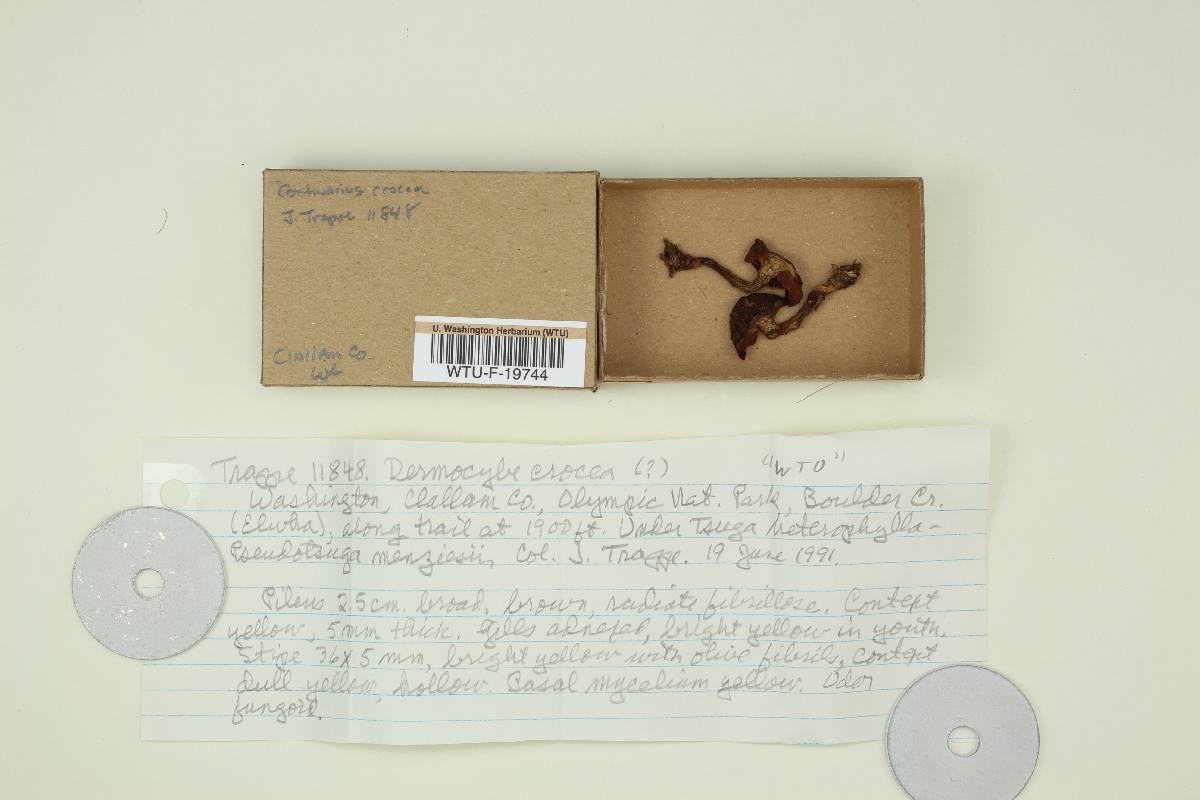 Cortinarius crocea
J. Trappe 11848
Clallam Co
U. Washington Herbarium (WTU)
WTU-F-19744
Trappe 11848. Dermocybe crocea (?) "WTU"
Washington, Clallam Co., Olympic Nat. Park, Boulder Cr.
(Elwha), along trail at 1900 ft. Under Tsuga heterophylla-
Pseudotsuga menziesii, Col. J. Trappe. 19 June 1991.
Pileus 2.5cm. broad, brown, radiate fibrillose. Context
yellow, 5mm thick. Gills adnexed, bright yellow in youth.
Stipe 36x5 mm, bright yellow with olive fibrils, context
dull yellow, hollow. Basal mycelium yellow. Odor
fungoid.